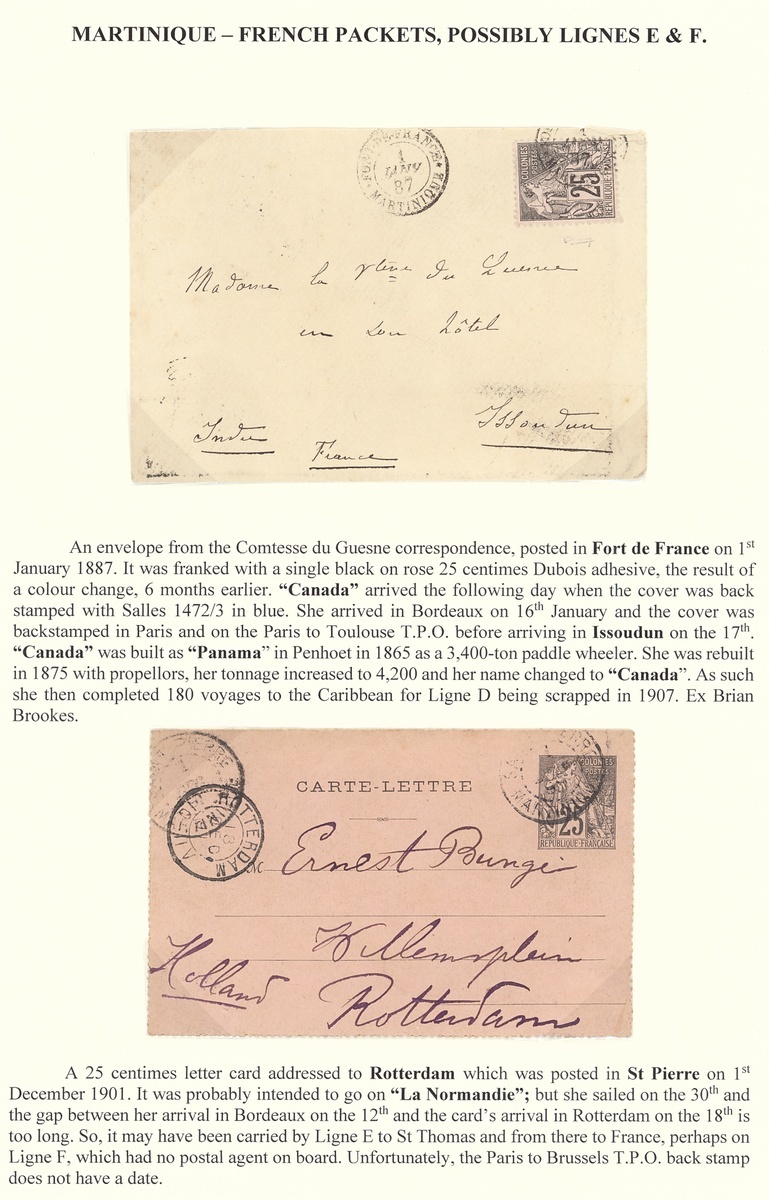 MARTINIQUE – FRENCH PACKETS, POSSIBLY LIGNES E & F.
FORT-DE-FRANCE
1
JANV
87
MARTINIQUE
COLONIES
POSTES
25
RÉPUBLIQUE FRANÇAISE
Madame la du
en son hôtel
Issoudun
Indre
France
An envelope from the Comtesse du Guesne correspondence, posted in Fort de France on 1st
January 1887. It was franked with a single black on rose 25 centimes Dubois adhesive, the result of
a colour change, 6 months earlier. “Canada” arrived the following day when the cover was back
stamped with Salles 1472/3 in blue. She arrived in Bordeaux on 16th January and the cover was
backstamped in Paris and on the Paris to Toulouse T.P.O. before arriving in Issoudun on the 17th.
“Canada” was built as “Panama” in Penhoet in 1865 as a 3,400-ton paddle wheeler. She was rebuilt
in 1875 with propellors, her tonnage increased to 4,200 and her name changed to “Canada”. As such
she then completed 180 voyages to the Caribbean for Ligne D being scrapped in 1907. Ex Brian
Brookes.
CARTE-LETTRE
COLONIES
POSTES
25
RÉPUBLIQUE FRANÇAISE
ROTTERDAM
Ernest Bunge
Willemsplein
Holland
Rotterdam
A 25 centimes letter card addressed to Rotterdam which was posted in St Pierre on 1st
December 1901. It was probably intended to go on “La Normandie”; but she sailed on the 30th and
the gap between her arrival in Bordeaux on the 12th and the card’s arrival in Rotterdam on the 18th is
too long. So, it may have been carried by Ligne E to St Thomas and from there to France, perhaps on
Ligne F, which had no postal agent on board. Unfortunately, the Paris to Brussels T.P.O. back stamp
does not have a date.